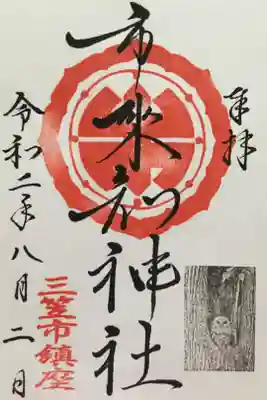 奉拝
市来知神社
三笠市鎮座
令和二年八月二日